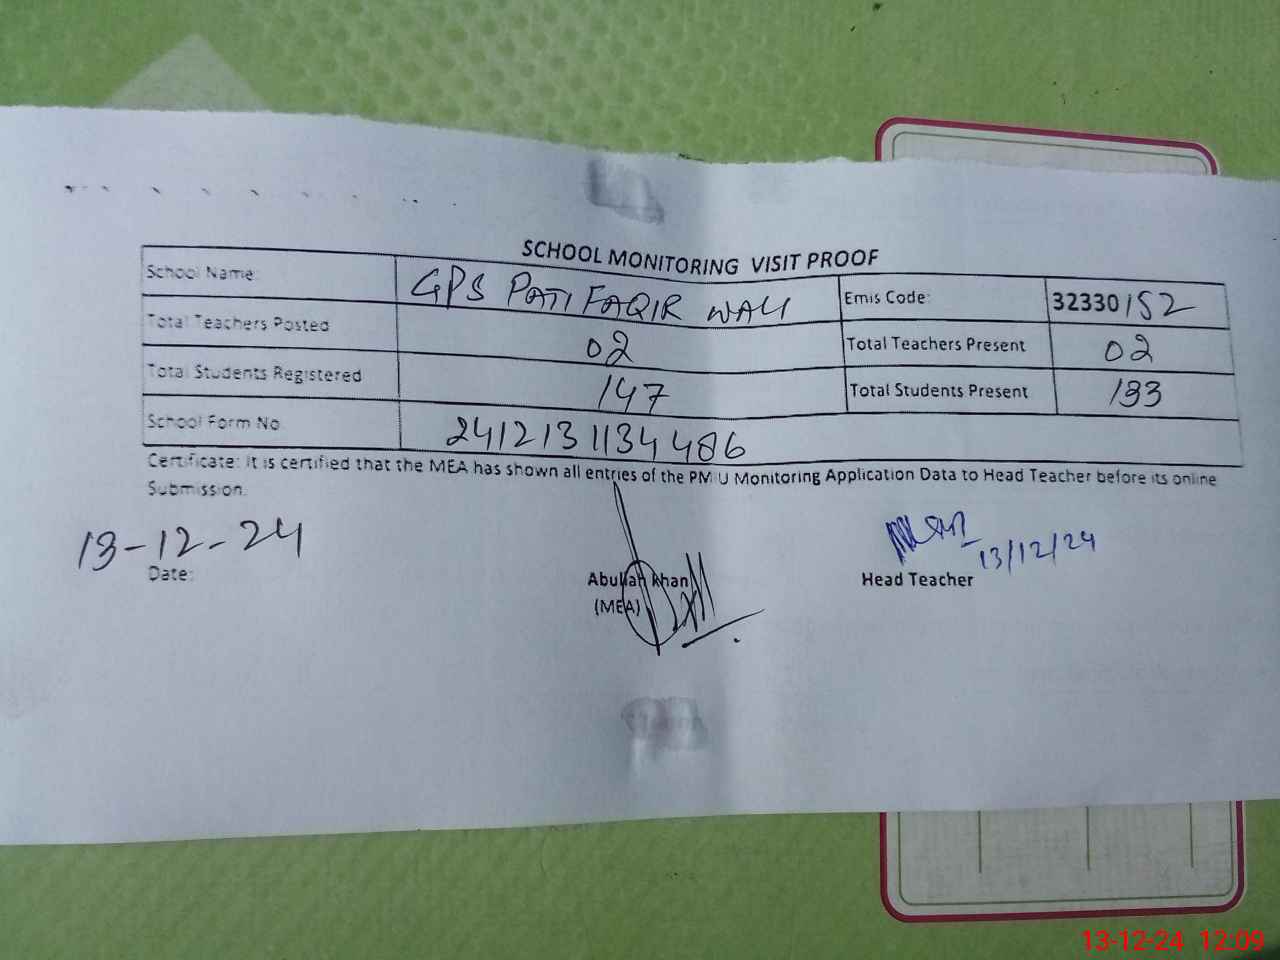 SCHOOL MONITORING VISIT PROOF
School Name: GPS PATI FAQIR WALI Emis Code: 32330152
Total Teachers Posted 02 Total Teachers Present 02
Total Students Registered 147 Total Students Present 133
School Form No 2412131134486
Certificate: It is certified that the MEA has shown all entries of the PMIU Monitoring Application Data to Head Teacher before its online
Submission.
13-12-24
Date:
Abullah khan
(MEA)
13/12/24
Head Teacher
13-12-24 12:09